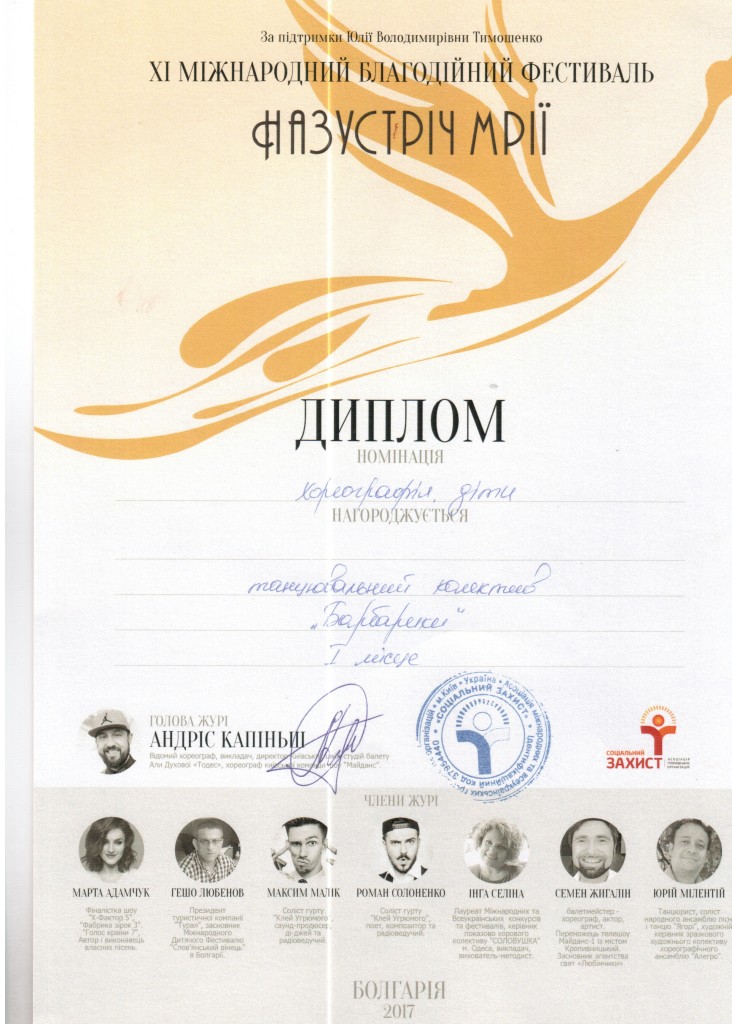 За підтримки Юлії Володимирівни Тимошенко
XI МІЖНАРОДНИЙ БЛАГОДІЙНИЙ ФЕСТИВАЛЬ
НАЗУСТРІЧ МРІЇ
ДИПЛОМ
НОМІНАЦІЯ
хореографія, діти
НАГОРОДЖУЄТЬСЯ
танцювальний колектив
„Барбарики"
I місце
ГОЛОВА ЖУРІ
АНДРІС КАПІНЬШ
Відомий хореограф, викладач, директор
студій балету
Али Духової «Тодес», хореограф
команди шоу "Майданс".
м.Київ • Україна • Асоціація міжнародних та всеукраїнських
організацій • Ідентифікаційний код 37854440
«СОЦІАЛЬНИЙ ЗАХИСТ»
СОЦІАЛЬНИЙ
ЗАХИСТ
АСОЦІАЦІЯ
ГРОМАДСЬКИХ
ОРГАНІЗАЦІЙ
ЧЛЕНИ ЖУРІ
МАРТА АДАМЧУК
Фіналістка шоу
"Х-Фактор 5",
"Фабрика зірок 3"
"Голос країни 7",
Автор і виконавець
власних пісень.
ГЕШО ЛЮБЕНОВ
Президент
туристичної компанії
"Гурал", засновник
Міжнародного
Дитячого Фестивалю
"Слов'янський вінець"
в Болгарії.
МАКСИМ МАЛІК
Соліст гурту
"Клей Угрюмого",
саунд-продюсер,
ді-джей та
радіоведучий.
РОМАН СОЛОНЕНКО
Соліст гурту
"Клей Угрюмого",
поет, композитор та
радіоведучий.
ІНГА СЕЛІНА
Лауреат Міжнародних та
Всеукраїнських конкурсів
та фестивалів, керівник
показово хорового
колективу "СОЛОВУШКА"
м. Одеса, викладач,
вихователь-методист.
СЕМЕН ЖИГАЛІН
балетмейстер -
хореограф, актор,
артист.
Переможець телешоу
Майданс-1 із містом
Кропивницький.
Засновник агентства
свят «Любимчики»
ЮРІЙ МІЛЕНТІЙ
Танцюрист, соліст
народного ансамблю пісні
і танцю "Ягорі", художній
керівник зразкового
художнього колективу
хореографічного
ансамблю "Алегро".
БОЛГАРІЯ
2017